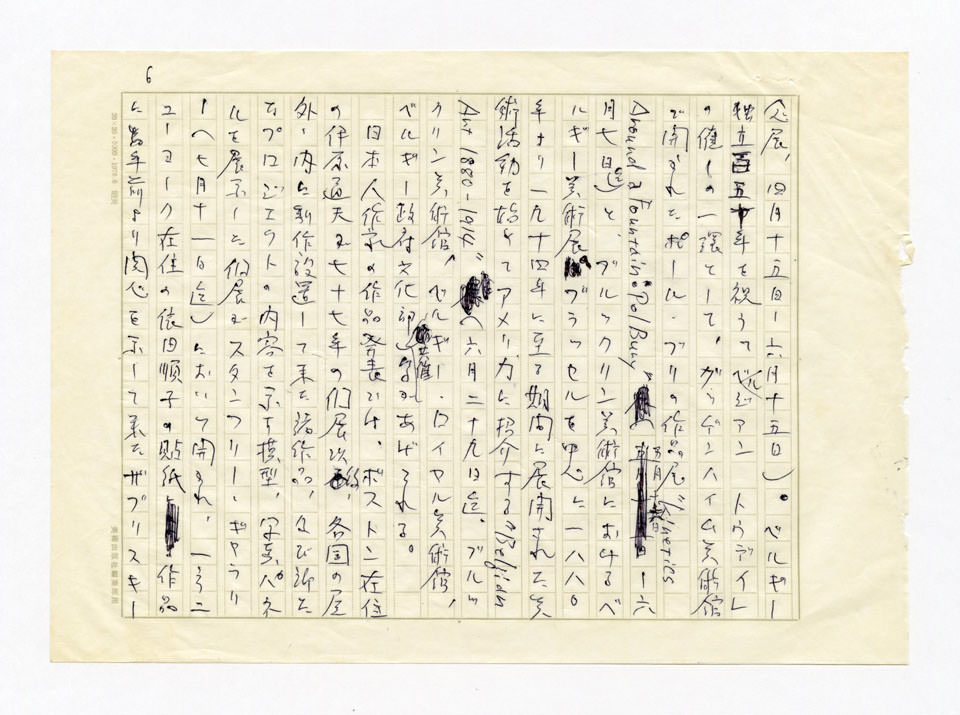 6
念展、(四月十五日ー六月十五日)。ベルギー
独立百五十年を祝うてベルジアン トゥデイト
の催しの一環として、グッゲンハイム美術館
で開かれたポール・ブリの作品展"Kinetics
Around a Fountain: Pol Bury" 五月 ー六
月七日迄)と、ブルックリン美術館におけるベ
ルギー美術展 ブラッセルを中心に一八八〇
年より一九一四年に至る期間に展開された美
術活動を始めてアメリカに紹介する"Belgian
Art 1880-1914" (六月二十九日迄。ブルッ
クリン美術館、ベルギー・ロイヤル美術館、
ベルギー政府文化部 主催)等があげられる。
日本人作家の作品発表では、ボストン在住
の伊原通夫が七十七年の個展以後、各国の屋
外・内に新作設置して来た諸作品、及び新た
なプロジェクトの内容を示す模型、写真パネ
ルを展示した個展がスタンフリー・ギャラリ
ー(七月十一日迄)において開かれ、ニュ
ーヨーク在住の依田順子の貼紙 作品
に数年前より関心を示して来たザブリスキー